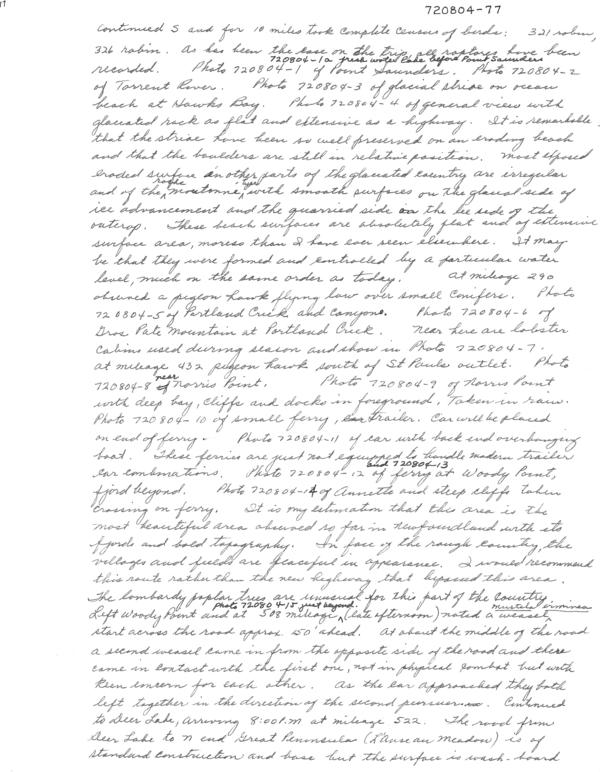 720804-77
Continued S and for 10 miles took complete census of birds: 321 robin,
326 robin. As has been the case on the trip, all raptores have been
720804-1a fresh water lake before Point Saunders
recorded. Photo 720804-1 of Point Saunders. Photo 720804-2
of Torrent River. Photo 720804-3 of glacial striae on ocean
beach at Hawks Bay. Photo 720804-4 of general view with
glaciated rock as flat and extensive as a highway. It is remarkable
that the striae have been so well preserved on an eroding beach
and that the boulders are still in relative position. Most exposed
eroded surface in other parts of the glaciated country are irregular
and of the roche moutonne type with smooth surfaces on the glacial side of
ice advancement and the quarried side on the lee side of the
outcrop. These beach surfaces are absolutely flat and of extensive
surface area, moreso than I have ever seen elsewhere. It may
be that they were formed and controlled by a particular water
level, much on the same order as today. At mileage 290
observed a pigeon hawk flying low over small conifers. Photo
720804-5 of Portland Creek and Canyons. Photo 720804-6 of
Gros Pate Mountain at Portland Creek. Near here are lobster
cabins used during season and show in Photo 720804-7.
At mileage 432 pigeon hawk south of St Pauls outlet. Photo
720804-8 near Norris Point. Photo 720804-9 of Norris Point
with deep bay, cliffs and docks in foreground. Taken in rain.
Photo 720804-10 of small ferry, trailer. Car will be placed
on end of ferry. Photo 720804-11 of car with back end overhanging
boat. These ferries are just not equipped to handle modern trailer
car combinations. Photo 720804-12 and 720804-13 of ferry at Woody Point,
fjord beyond. Photo 720804-14 of Annette and steep cliffs taken
crossing on ferry. It is my estimation that this area is the
most beautiful area observed so far in Newfoundland with its
fjords and bold topography. In face of the rough country, the
villages and fields are peaceful in appearance. I would recommend
this route rather than the new highway that bypassed this area.
The lombardy poplar trees are unusual for this part of the country.
Photo 720804-15 just beyond. mustela erminea
Left Woody Point and at 508 mileage (late afternoon) noted a weasel
start across the road approx 150' ahead. At about the middle of the road
a second weasel came in from the opposite side of the road and there
came in contact with the first one, not in physical combat but with
keen concern for each other. As the car approached they both
left together in the direction of the second pursuer. Continued
to Deer Lake, arriving 8:00 P.M at mileage 522. The road from
Deer Lake to N end Great Peninsula (L'Anse au Meadow) is of
standard construction and base but the surface is wash-board